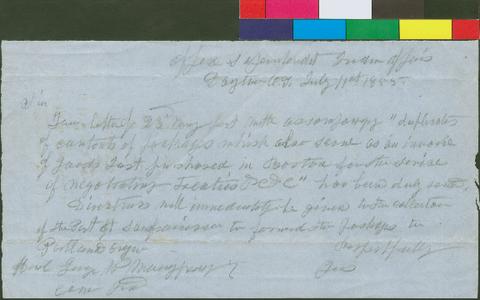 Office Superintendent Indian Affairs
Dayton O.T. July 11th 1855.
Sir
Your letter of 23d May last with accompanying "duplicates
of contents of packages which also serve as an invoice
of goods Just purchased in Boston for the service
of negotiating Treaties &c &c" has been duly recd.
Directions will immediately be given to the collector
of the Port of San francisco to forward the packages to
Portland Oregon
Respectfully
Hon Geo W Manypenny
Com